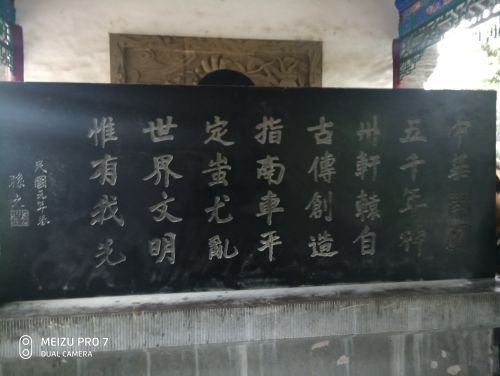 中華開國
五千年神
州軒轅自
古傳創造
指南車平
定蚩尤亂
世界文明
惟有我先
民國元年春
孫文
MEIZU PRO 7
DUAL CAMERA